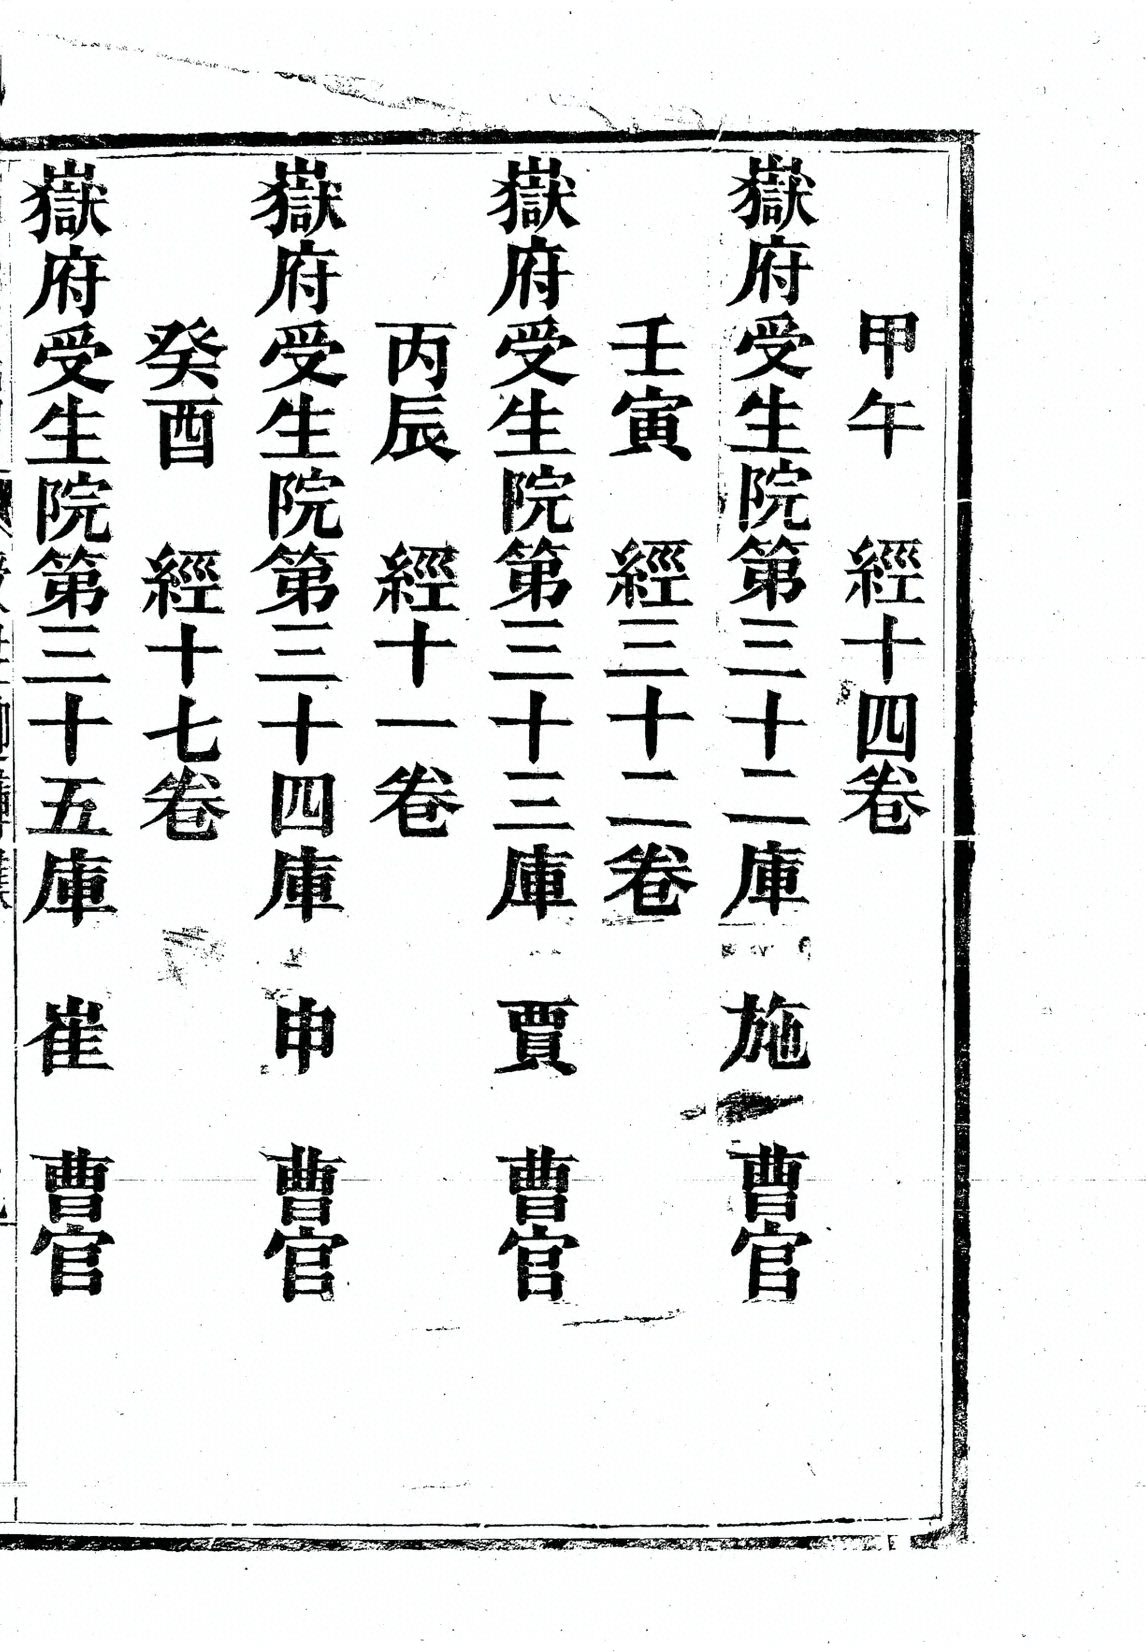 甲午 經十四卷
嶽府受生院第三十二庫 施 曹官
壬寅 經三十二卷
嶽府受生院第三十三庫 賈 曹官
丙辰 經十一卷
嶽府受生院第三十四庫 申 曹官
癸酉 經十七卷
嶽府受生院第三十五庫 崔 曹官